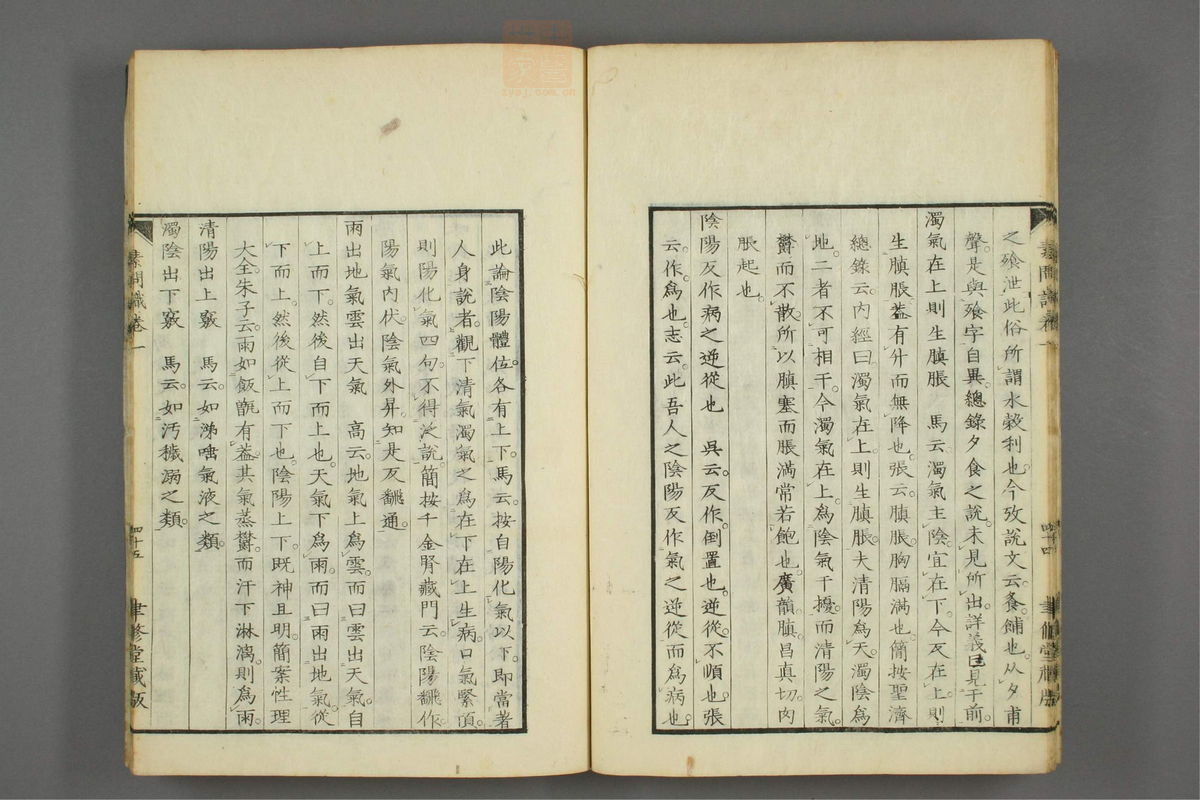 之飱泄此俗所謂水穀利也今攷說文云飱餔也从夕甫
聲是與飱字自異總錄夕食之說未見所出詳義已見于前
濁氣在上則生䐜脹　馬云濁氣主陰宜在下今反在上則
生䐜脹蓋有升而無降也張云䐜脹胸膈滿也簡按聖濟
總錄云內經曰濁氣在上則生䐜脹夫清陽為天濁陰為
地二者不可相干今濁氣在上為陰氣干擾而清陽之氣
鬱而不散所以䐜塞而脹滿常若飽也廣韻䐜昌真切肉
脹起也
陰陽反作病之逆從也　吳云反作倒置也逆從不順也張
云作為也志云此吾人之陰陽反作氣之逆從而為病也
素問識卷一
四十四
聿修堂藏版
此論陰陽體位各有上下馬云按自陽化氣以下即當著
人身說者觀下清氣濁氣之為在下在上生病口氣緊頂
則陽化氣四句不得泛說簡按千金腎藏門云陰陽翻作
陽氣內伏陰氣外昇知是反翻通
雨出地氣雲出天氣　高云地氣上為雲而曰雲出天氣自
上而下然後自下而上也天氣下為雨而曰雨出地氣從
下而上然後從上而下也陰陽上下既神且明簡案性理
大全朱子云雨如飯甑有蓋其氣蒸鬱而汗下淋漓則為雨
清陽出上竅　馬云如涕唾氣液之類
濁陰出下竅　馬云如污穢溺之類
素問識卷一
四十五
聿修堂藏版